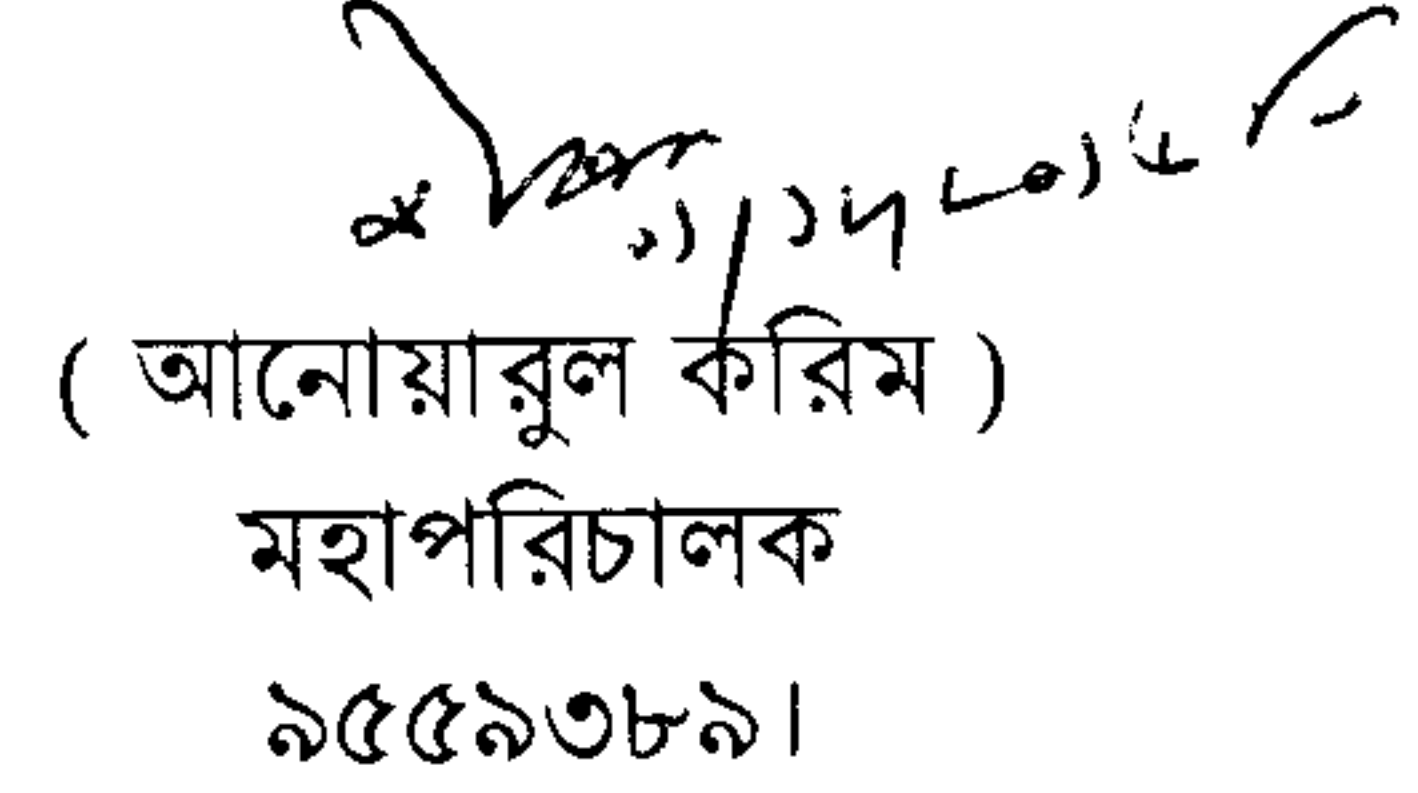 ( আনোয়ারুল করিম )
মহাপরিচালক
৯৫৫৯৩৮৯।